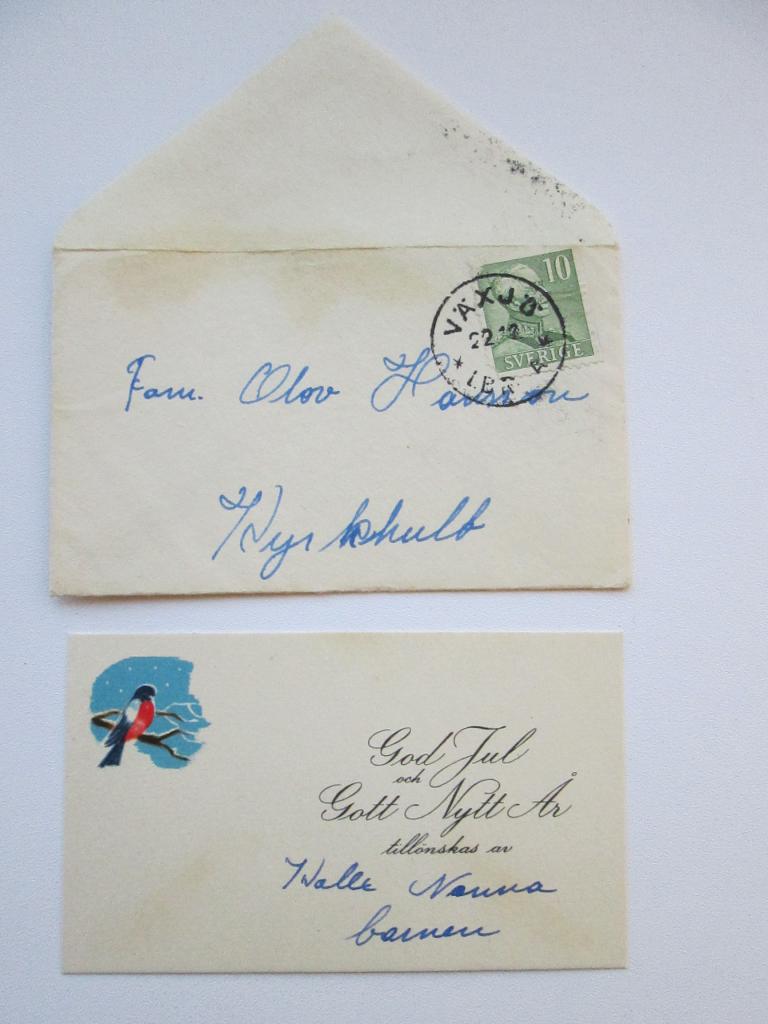 10
VÄXJÖ
22.12
SVERIGE
* LBR *
Fam. Olov Hansson
Kyrkhult
God Jul
och
Gott Nytt År
tillönskas av
Kalle Nanna
barnen